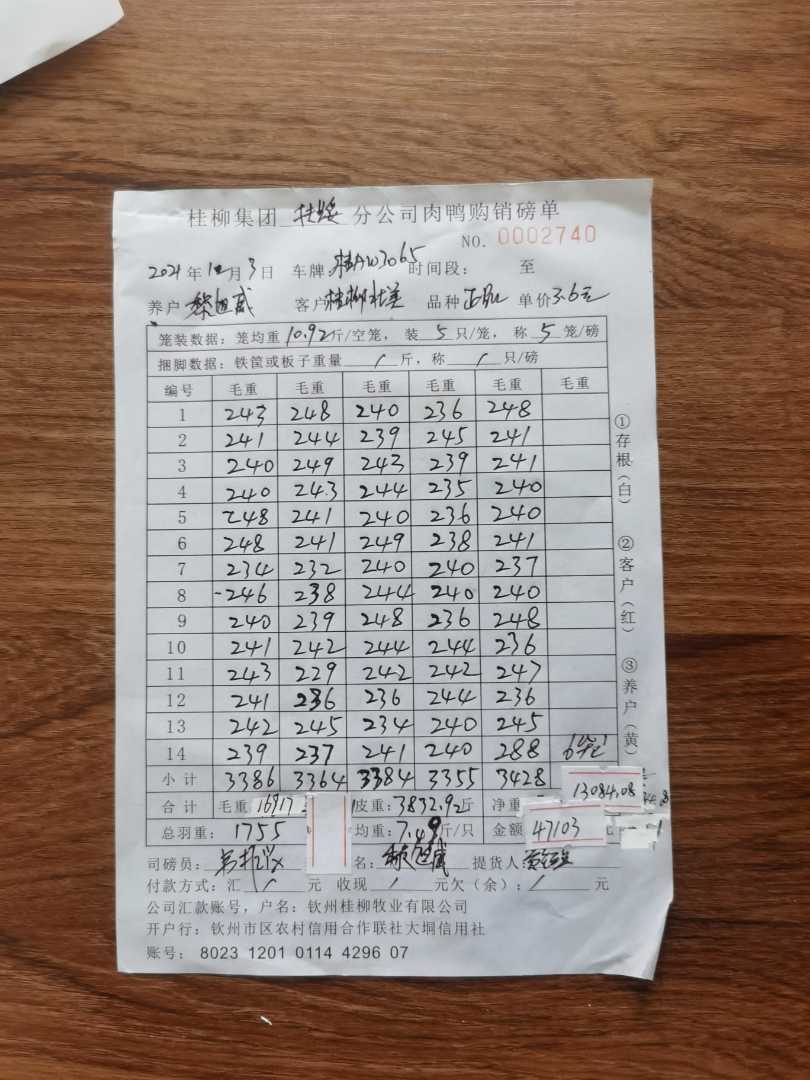 桂柳集团 扶绥 分公司肉鸭购销磅单
NO. 0002740
2021年10月3日 车牌:桂AW3065 时间段: 至
养户 黎旭威 客户桂柳扶美 品种 正品 单价3.6元
笼装数据:笼均重10.92斤/空笼,装5只/笼,称5笼/磅
捆脚数据:铁筐或板子重量/斤,称/只/磅
编号 毛重 毛重 毛重 毛重 毛重 毛重
1 243 248 240 236 248
2 241 244 239 245 241
3 240 249 243 239 241
4 240 243 244 235 240
5 248 241 240 236 240
6 248 241 249 238 241
7 234 232 240 240 237
8 246 238 244 240 240
9 240 239 248 236 248
10 241 242 244 244 236
11 243 229 242 242 247
12 241 236 236 244 236
13 242 245 234 240 245
14 239 237 241 240 288 6笼
小计 3386 3364 3384 3355 3428
合计 毛重 16917 皮重:3832.92斤 净重 13084.08
总羽重:1755 均重:7.49斤/只 金额 47103 元
司磅员: 名: 黎旭威 提货人
付款方式:汇/元 收现/元欠(余):/元
公司汇款账号,户名:钦州桂柳牧业有限公司
开户行:钦州市区农村信用合作联社大垌信用社
账号:8023 1201 0114 4296 07
①存根(白) ②客户(红) ③养户(黄)